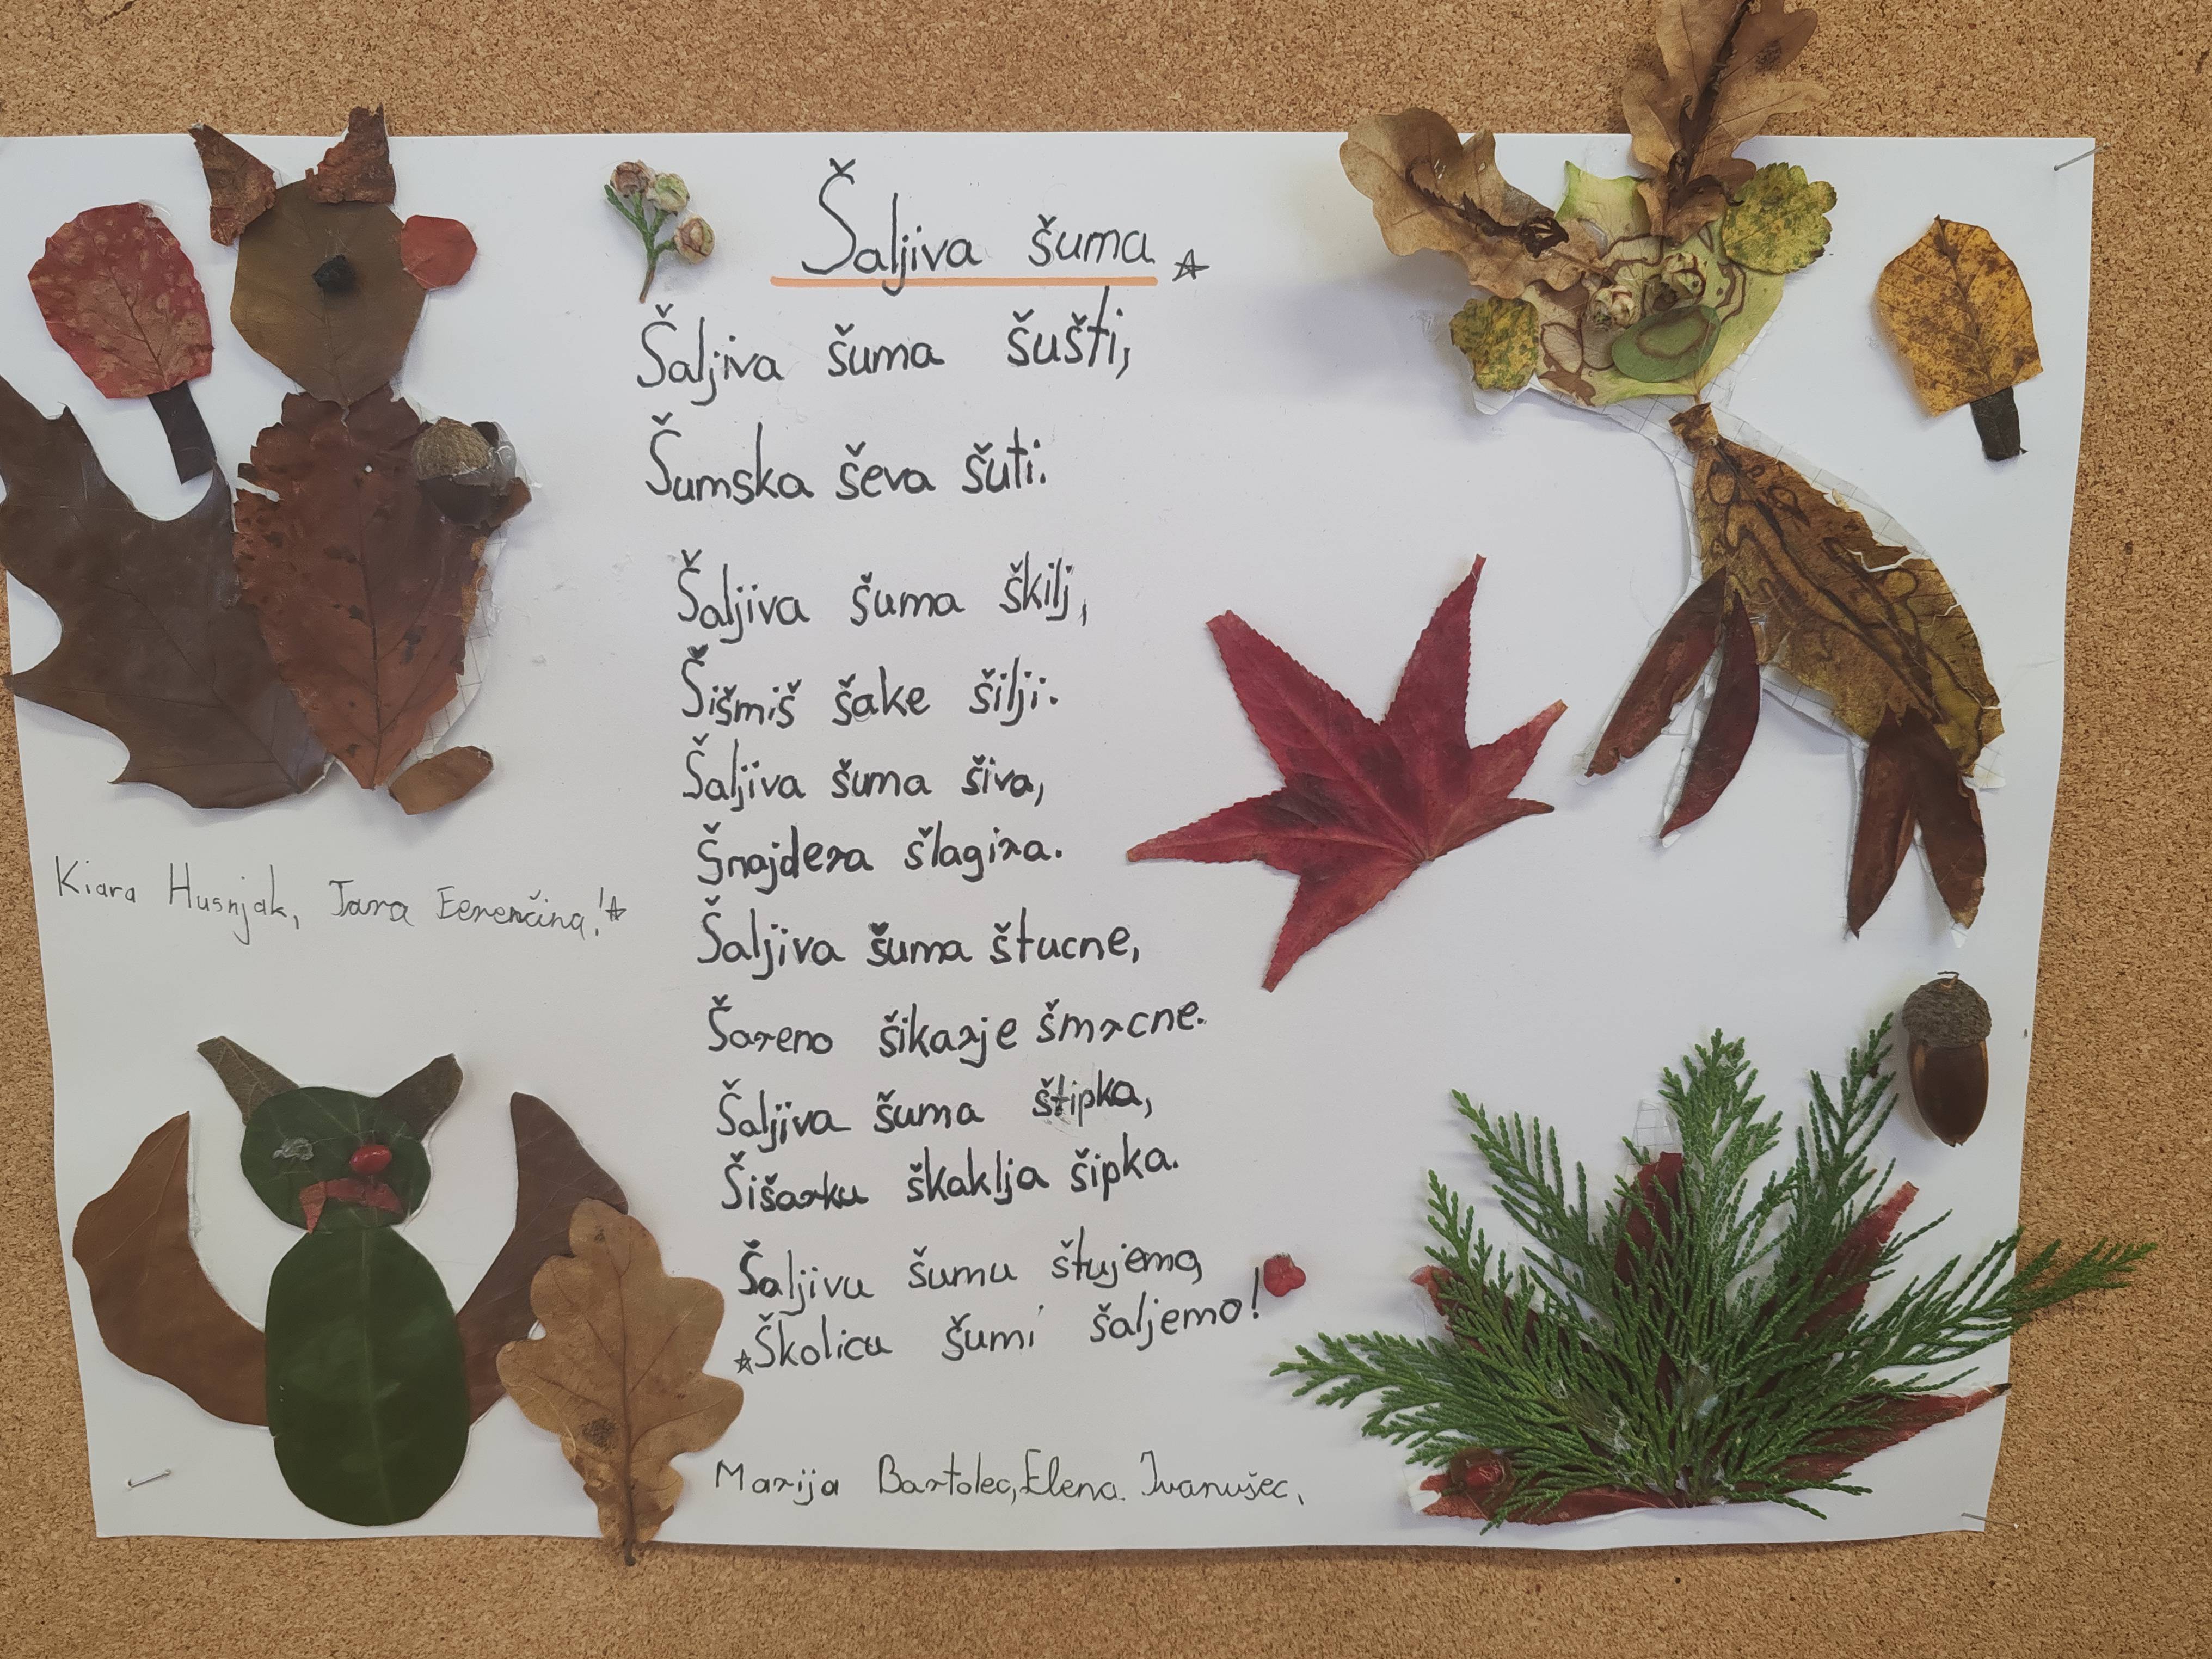 Šaljiva šuma
Šaljiva šuma šušti,
Šumska ševa šuti.
Šaljiva šuma škilj,
Šišmiš šake šilji.
Šaljiva šuma šiva,
Šnajdera šlagira.
Šaljiva šuma štucne,
Šareno šikarje šmrcne.
Šaljiva šuma štipka,
Šišarku škaklja šipka.
Šaljivu šumu štujemo,
Školicu šumi šaljemo!
Kiara Husnjak, Tara
Marija Bartolec, Elena Ivanušec,